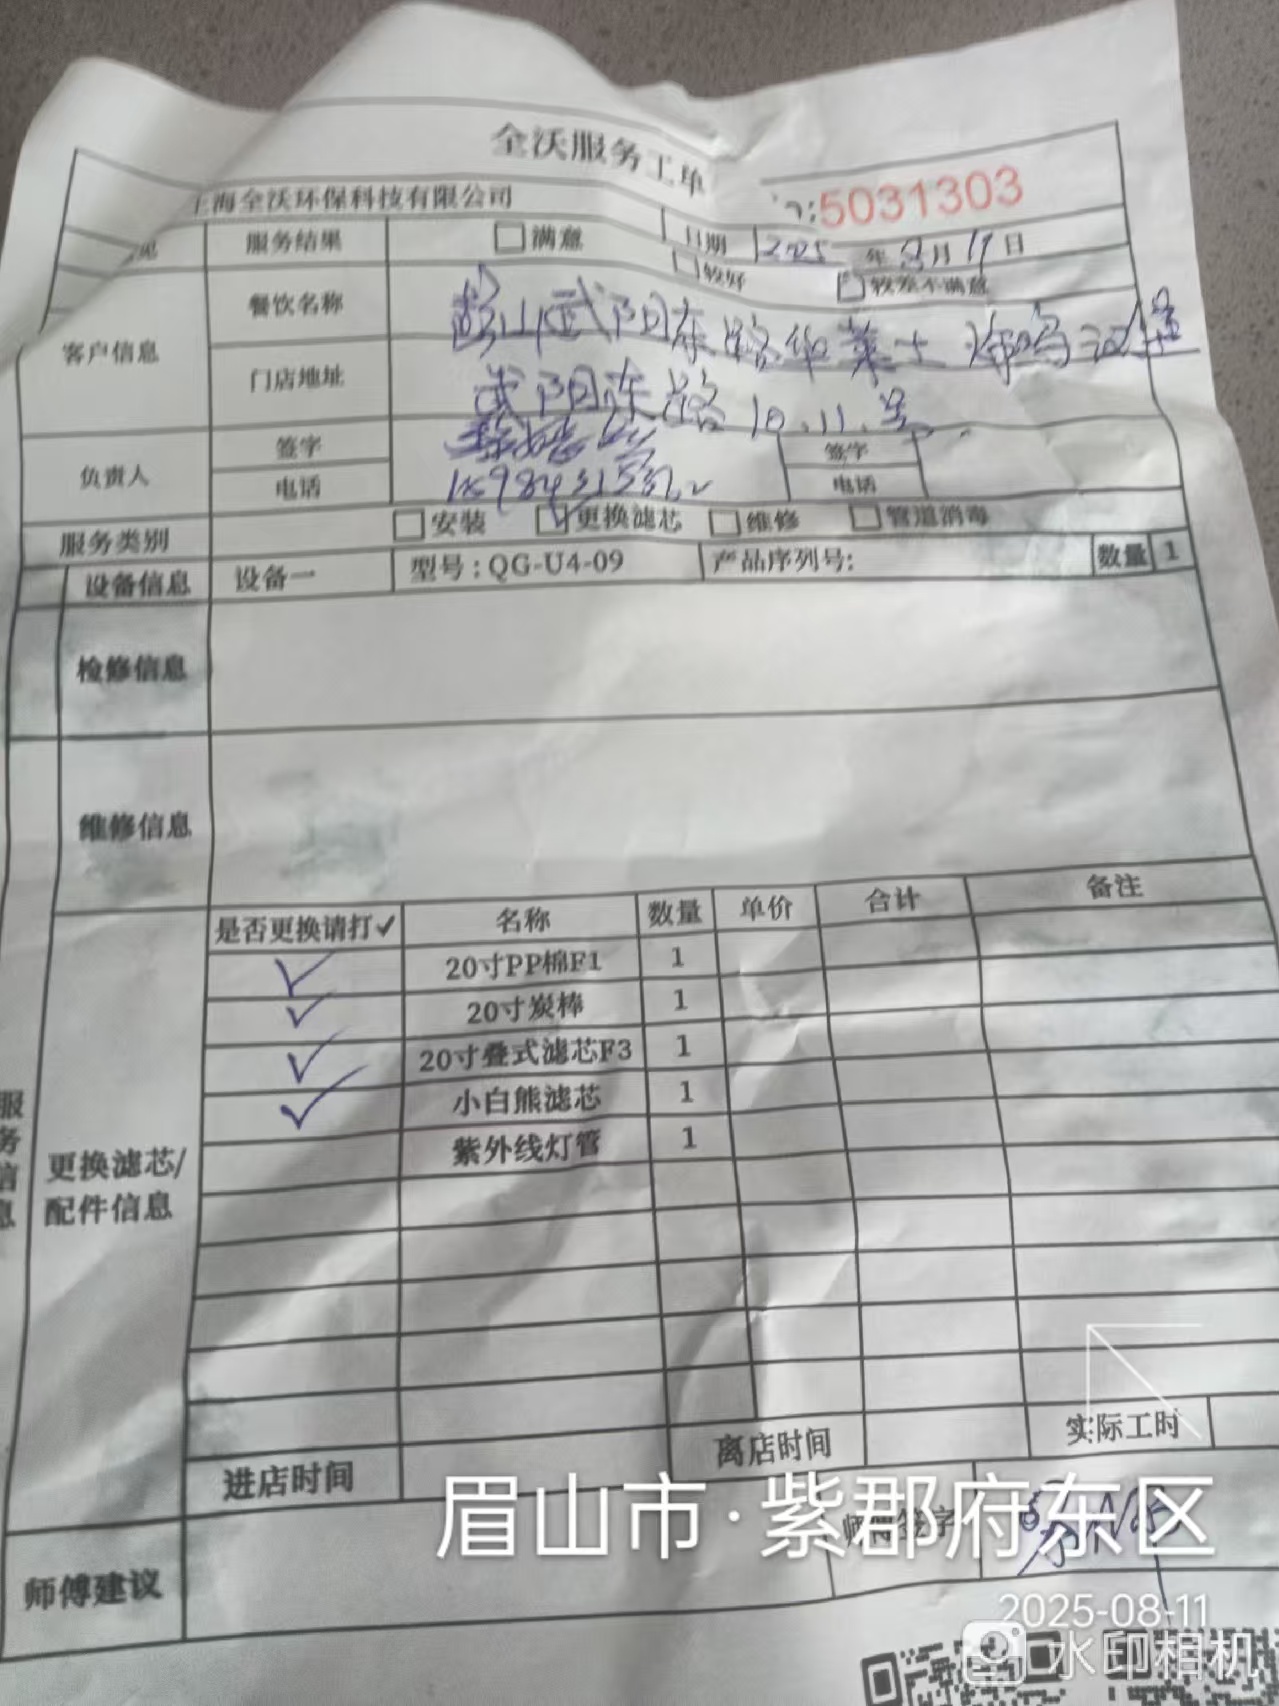 全沃服务工单
上海全沃环保科技有限公司
:5031303
服务结果 满意 较好 较差不满意
日期 2025 年 8 月 11 日
客户信息
餐饮名称 彭山区武阳东路华莱士炸鸡汉堡
门店地址 武阳东路10.11.号
负责人
签字 签字
电话 电话
服务类别 安装 更换滤芯 维修 管道消毒
设备信息 设备一 型号:QG-U4-09 产品序列号: 数量 1
检修信息
维修信息
服务信息
更换滤芯/
配件信息
是否更换请打✓ 名称 数量 单价 合计 备注
✓ 20寸PP棉F1 1
✓ 20寸炭棒 1
✓ 20寸叠式滤芯F3 1
✓ 小白熊滤芯 1
紫外线灯管 1
进店时间 离店时间 实际工时
师傅建议 师傅签字
眉山市·紫郡府东区
2025-08-11
水印相机